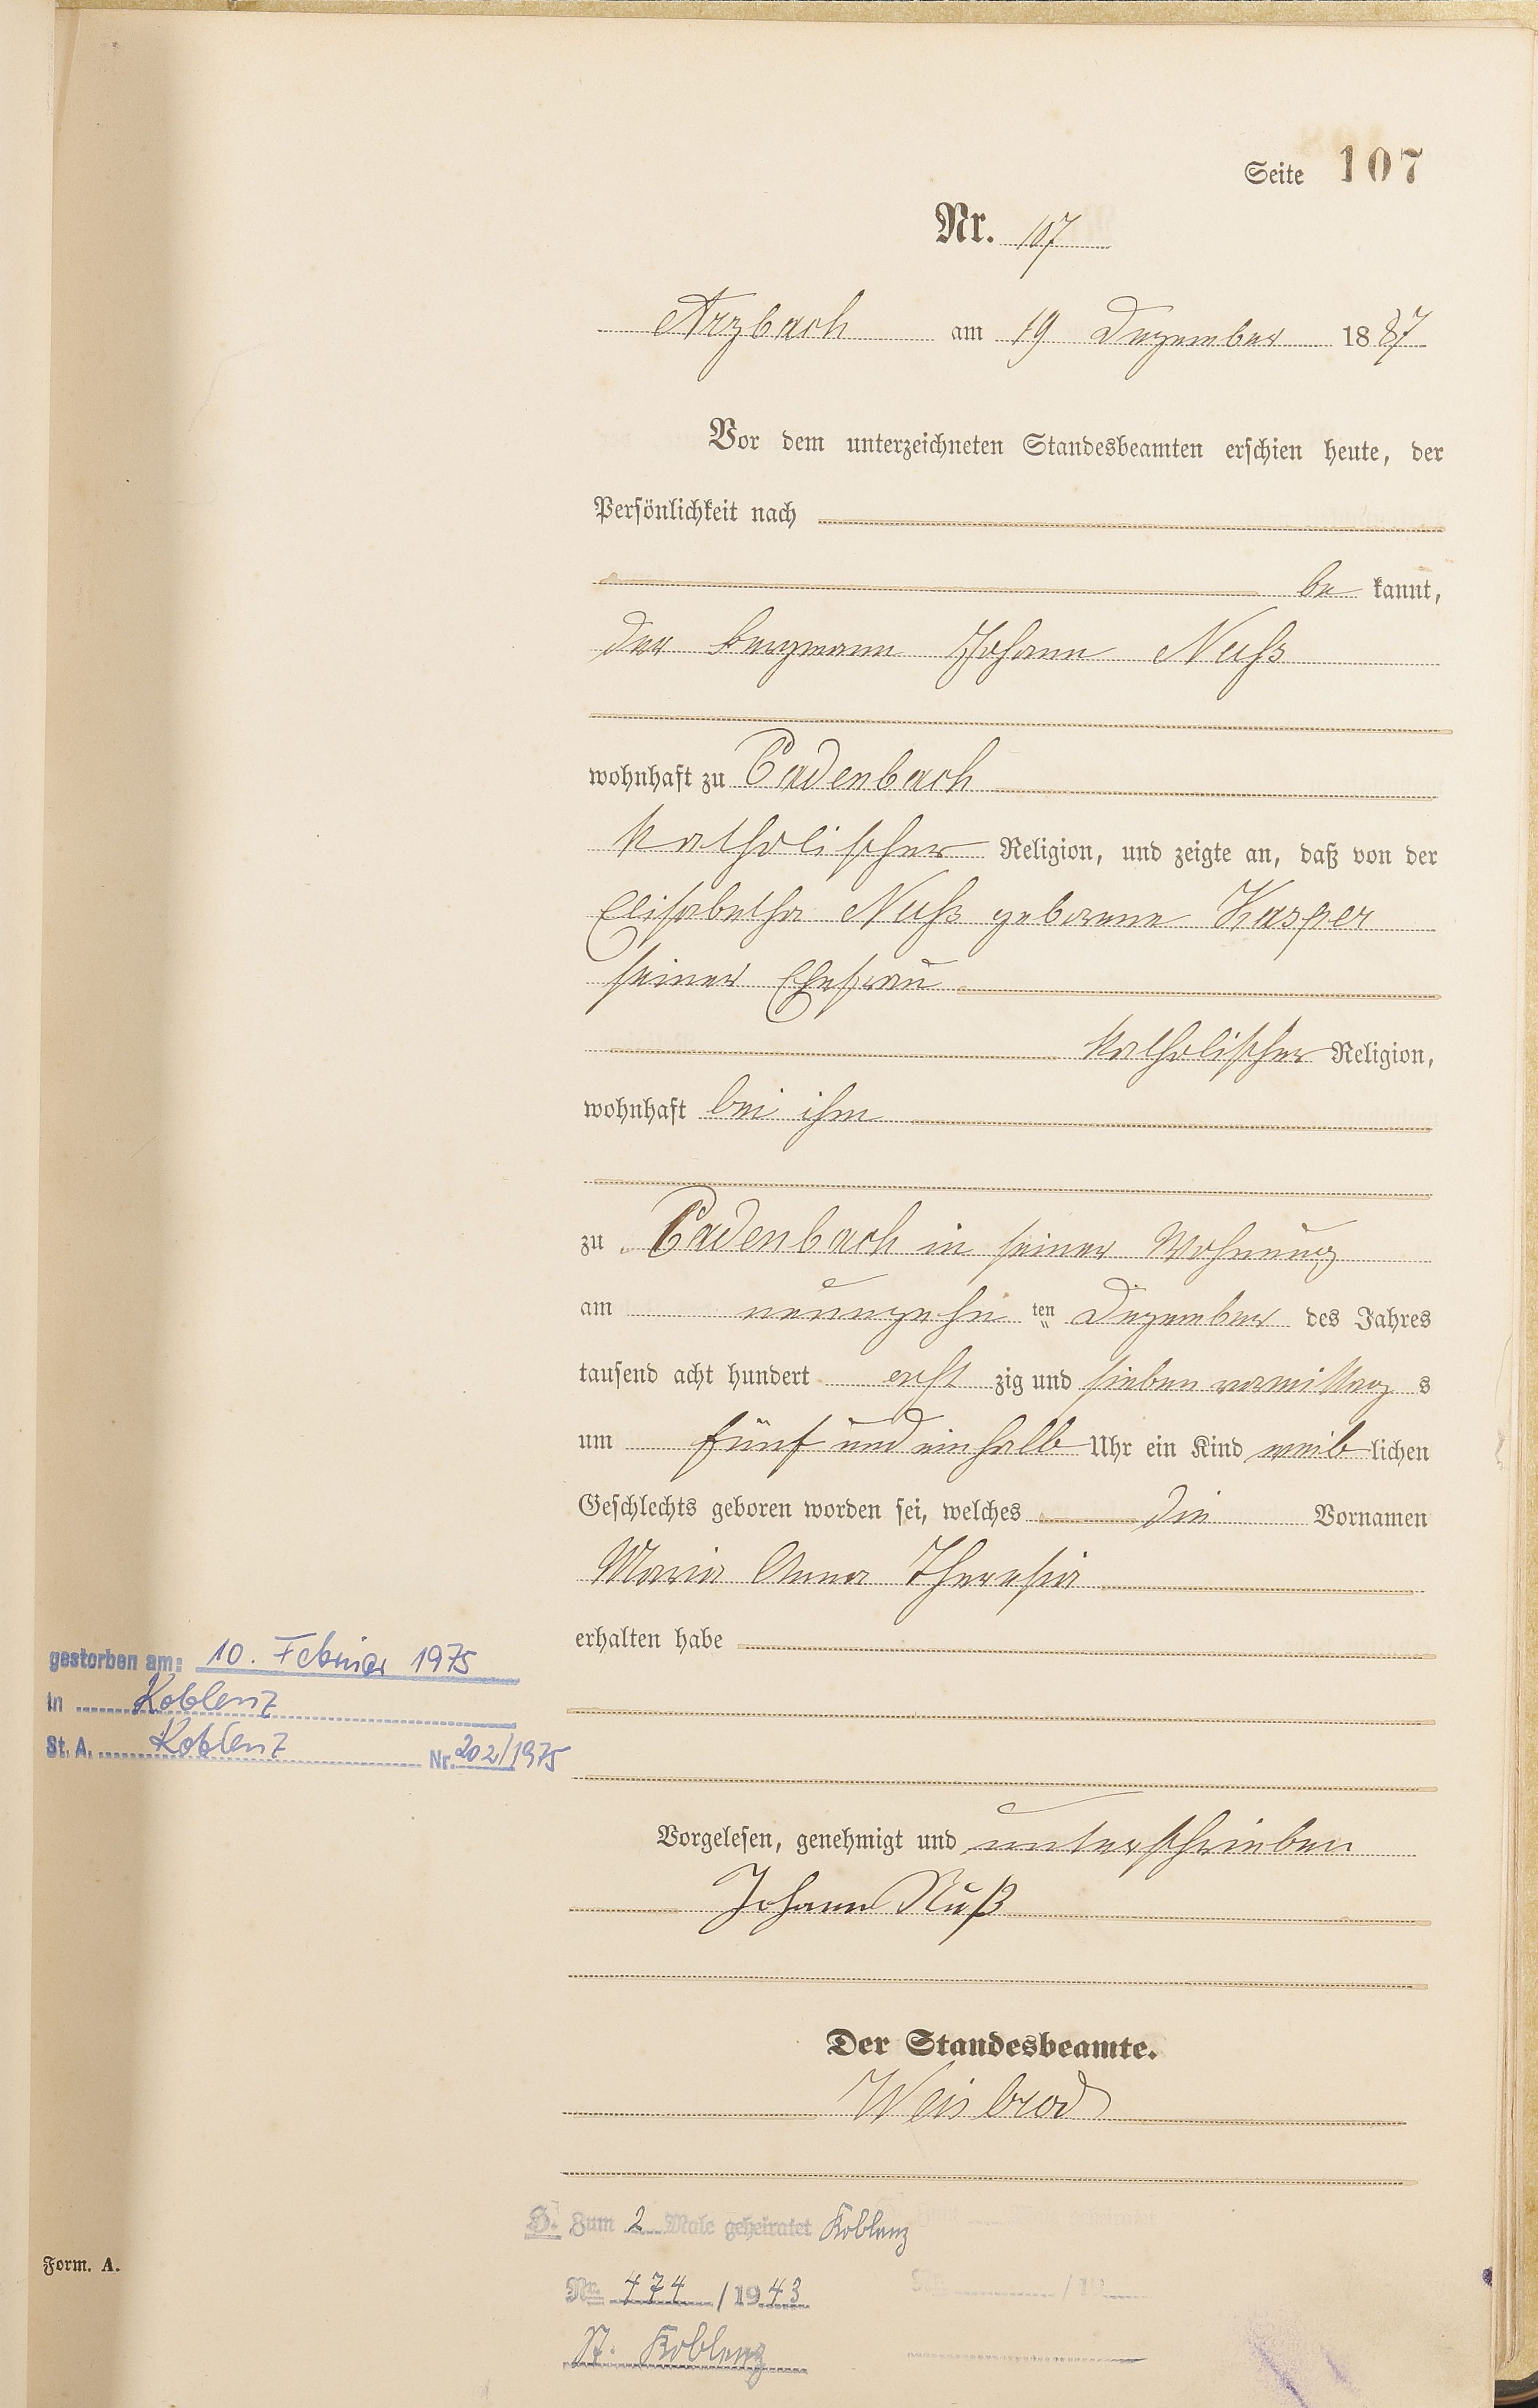 Seite 107
Nr. 107
Arzbach am 19 Dezember 1887
Vor dem unterzeichneten Standesbeamten erschien heute, der
Persönlichkeit nach
be kannt,
der Bergmann Johann Nuß
wohnhaft zu Cadenbach
katholischer Religion, und zeigte an, daß von der
Elisabetha Nuß geborene Kasper
seiner Ehefrau
katholischer Religion,
wohnhaft bei ihm
zu Cadenbach in seiner Wohnung
am neunzehn ten Dezember des Jahres
tausend acht hundert acht zig und sieben vormittag s
um fünf und ein halb Uhr ein Kind weib lichen
Geschlechts geboren worden sei, welches die Vornamen
Maria Anna Theresia
erhalten habe
gestorben am: 10. Februar 1975
in Koblenz
St. A. Koblenz Nr. 202/1975
Vorgelesen, genehmigt und unterschrieben
Johann Nuß
Der Standesbeamte.
Weisbrod
Zum 2 Male geheiratet Koblenz
Nr. 474 / 1943
St. Koblenz
Nr. / 19
Form. A.